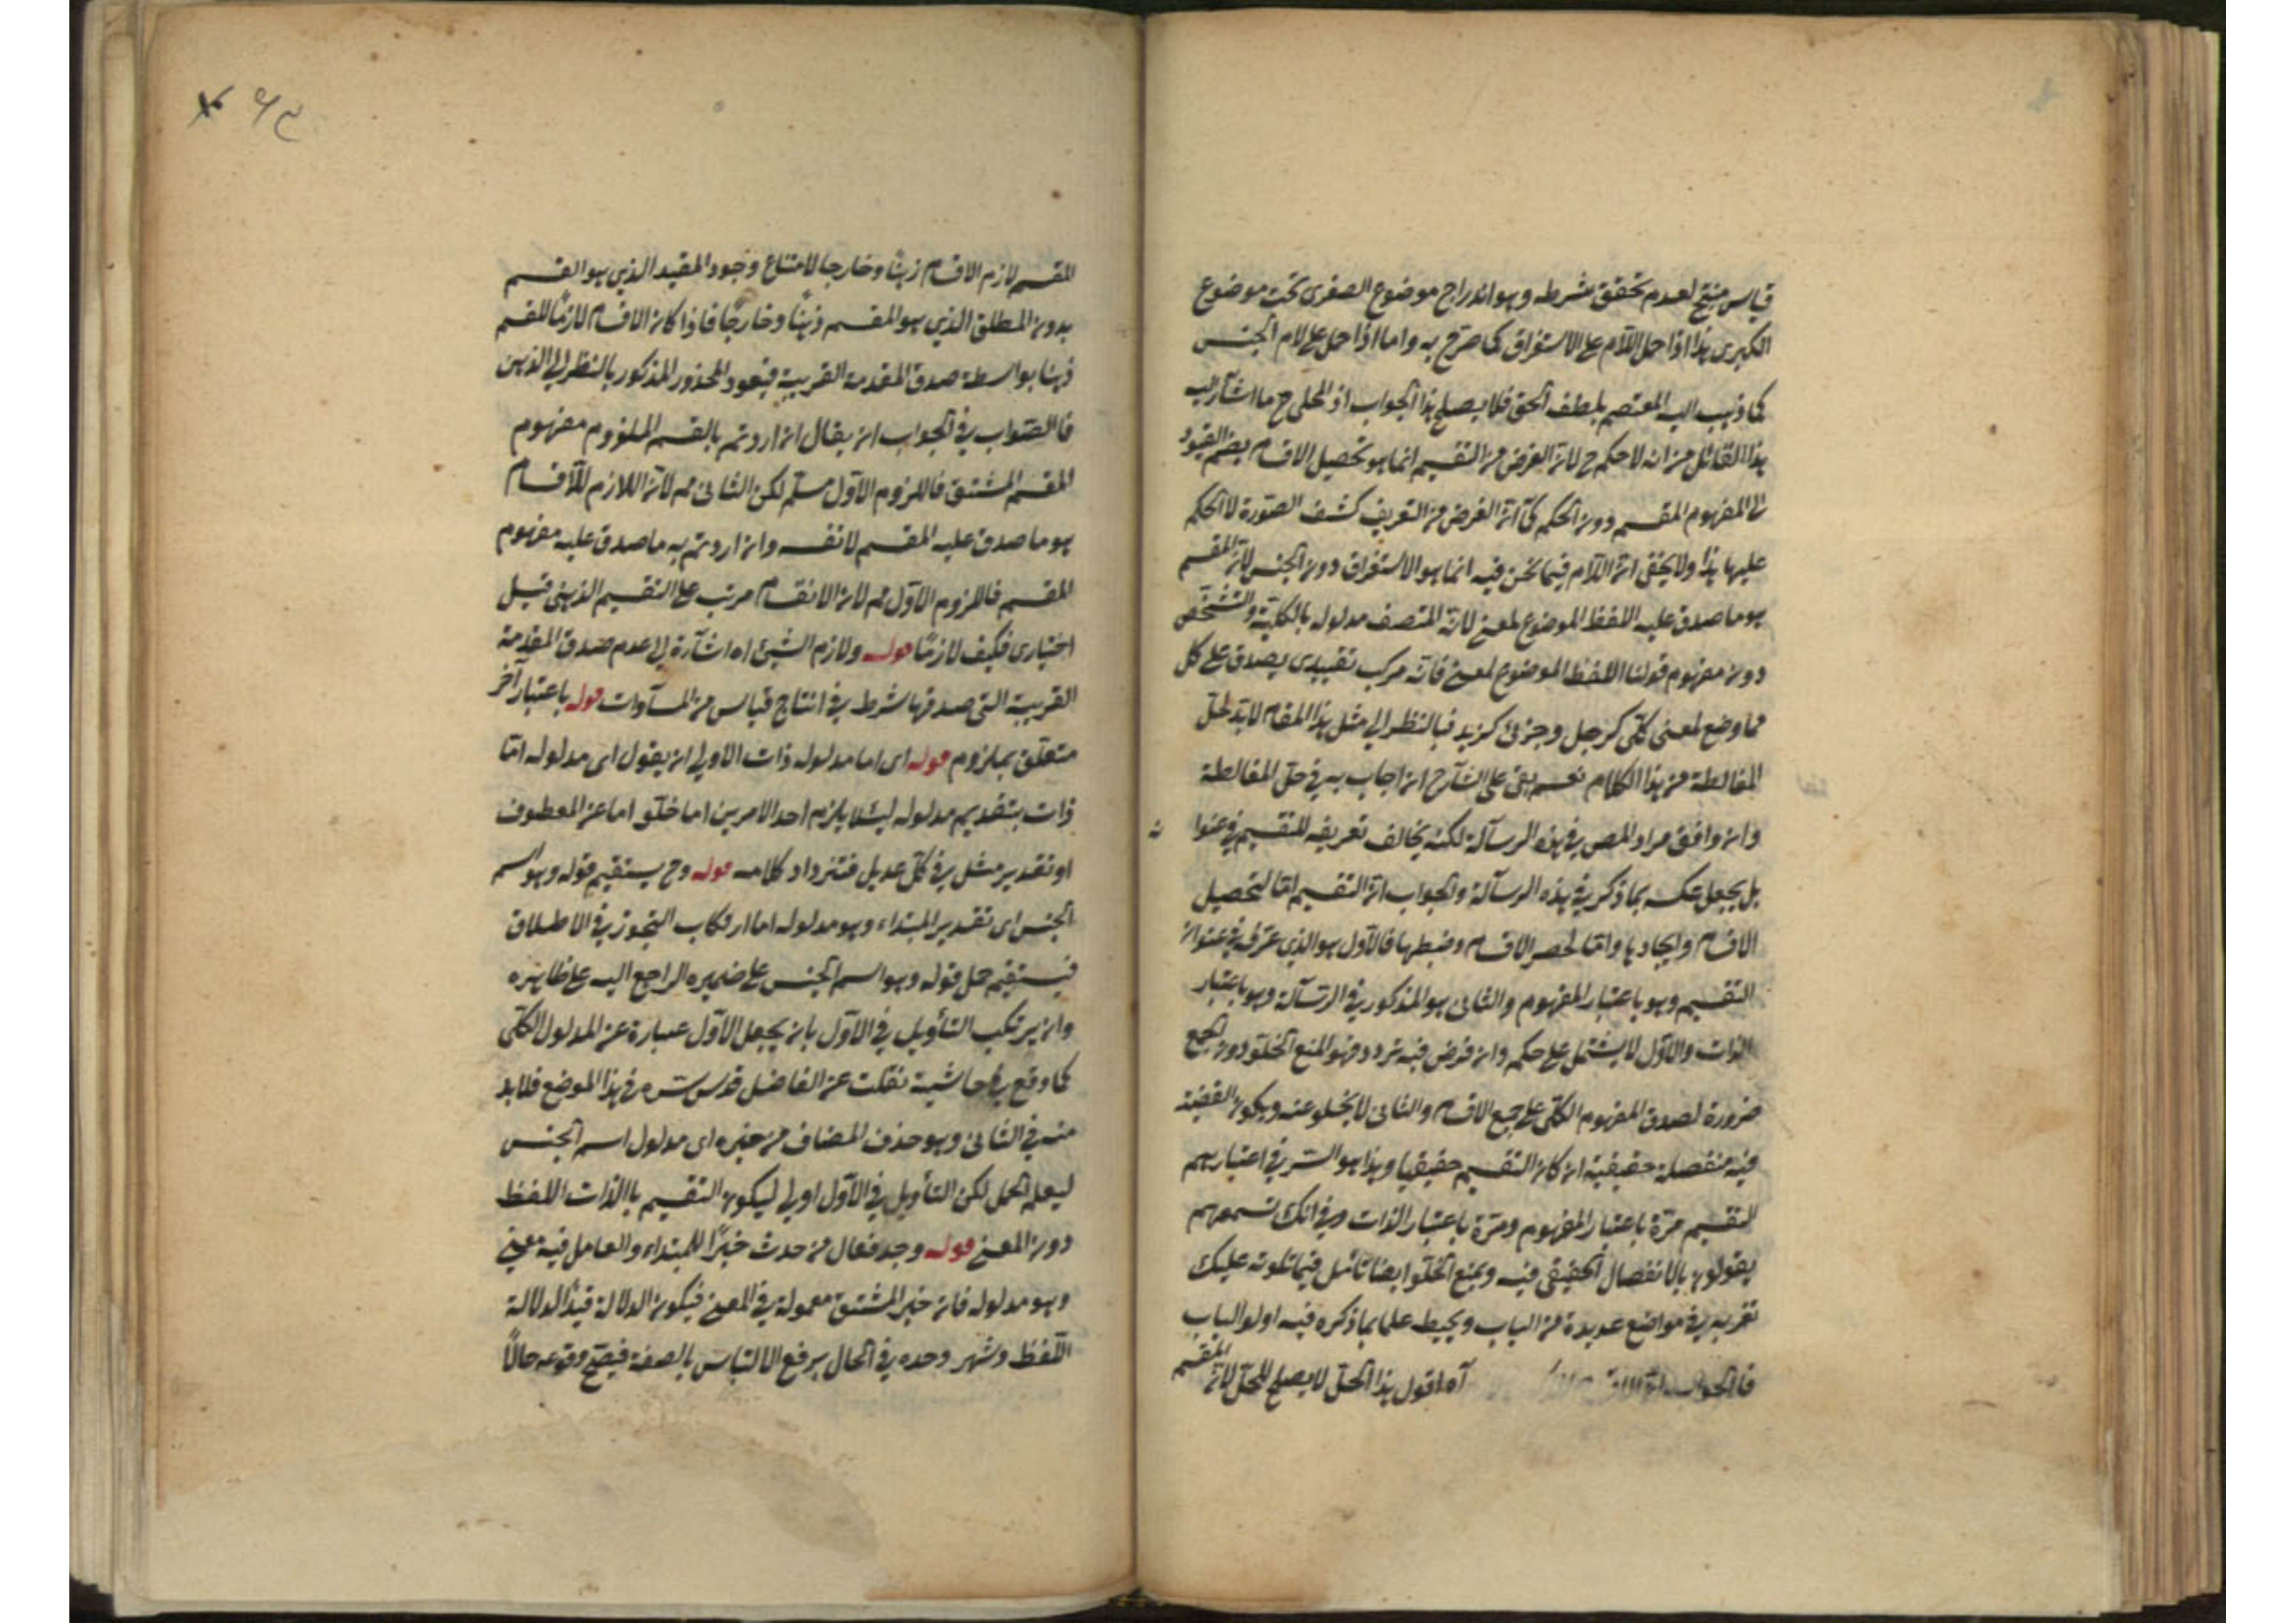 قياس منتج لعدم تحقق شرطه وهو اندراج موضوع الصغرى تحت موضوع
الكبرى هذا اذا حمل اللام على الاستغراق كما صرح به واما اذا حمل على لام الجنس
كما ذهب اليه المعتصم بلطف الحق فلا يصلح هذا الجواب اذ المحلى ح ما اشار اليه
هذا القائل من انه لا حكم ح لان الغرض من التقسيم انما هو تحصيل الاقسام بضم القيود
الى المفهوم المقسم دون الحكم كما ان الغرض من التعريف كشف الصورة لا الحكم
عليها هذا ولا يخفى ان اللام فيما نحن فيه انما هو الاستغراق دون الجنس لان المقسم
هو ما صدق عليه اللفظ الموضوع لمعنى لانه المتصف مدلوله بالكلية والتشخص
دون مفهوم قولنا اللفظ الموضوع لمعنى فانه مركب تقييدى يصدق على كل
مما وضع لمعنى كلى كرجل وجزئ كزيد فبالنظر الى مثل هذا المقام لا بد لحل
المغالطة من هذا الكلام نعم بقى على الشارح ان اجاب به فى حل المغالطة
وان وافق مراد المص فى هذه الرسالة لكنه يخالف تعريفه للتقسيم فى عنوا ن
بل يجعل عكسه بما ذكر فى هذه الرسالة والجواب ان التقسيم اما لتحصيل
الاقسام وايجادها واما لحصر الاقسام وضبطها فالاول هو الذى عرف فى عنوان
التقسيم وهو باعتبار المفهوم والثانى هو المذكور فى الرسالة وهو باعتبار
الذات والاول لا يشتمل على حكم وان فرض فيه تردد فهو المنع الخلو دون الجمع
ضرورة لصدق المفهوم الكلى على جميع الاقسام والثانى لا يخلو عنه ويكون القضية
فيه منفصلة حقيقية ان كان التقسيم حقيقيا وهذا هو السر فى اعتبارهم
التقسيم مرة باعتبار المفهوم ومرة باعتبار الذات وفى انك تسمعهم
يقولون بالانفصال الحقيقى فيه وبمنع الخلو ايضا تأمل فيما تلوته عليك
تفز به فى مواضع عديدة من الباب ويحيط علما بما ذكره فيه اولو الباب
فالجواب ان آه اقول هذا الحل لا يصلح للحل لان المقسم
المقسم لازم الاقسام ذهنًا وخارجا لامتناع وجود المقيد الذى هو القسم
بدون المطلق الذى هو المقسم ذهنًا وخارجًا فاذا كان الاقسام لازمًا للمقسم
ذهنا بواسطة صدق المقدمة القريبة فيعود المحذور المذكور بالنظر الى الذهن
فالصواب فى الجواب ان يقال ان اردتم بالقسم الملزوم مفهوم
المقسم المشتق فاللزوم الاول مسلم لكن الثانى مم لان اللازم للاقسام
هو ما صدق عليه المقسم لا نفسه وان اردتم به ما صدق عليه مفهوم
المقسم فاللزوم الاول مم لان الانقسام مرتب على التقسيم الذهنى قبل
اختيارى فكيف لازمًا قوله ولازم الشيئ اه اشارة الى عدم صدق المقدمة
القريبة التى صدقها شرط فى انتاج قياس من المساوات قوله باعتبار آخر
متعلق بملزوم قوله اى اما مدلوله ذات الاولى ان يقول اى مدلوله اما
ذات بتقديم مدلوله ليئلا يلزم احد الامرين اما خلو اما عن المعطوف
او تقدير مثل فى كل عديل فتزداد كلامه قوله وح يستقيم قوله وهو اسم
الجنس اى تقدير المبتداء وهو مدلوله اما ارتكاب التجوز فى الاطلاق
فيستقيم حمل قوله وهو اسم الجنس على ضميره الراجع اليه على ظاهره
وان يرتكب التأويل فى الاول بان يجعل الاول عبارة عن المدلول الكلى
كما وقع فى حاشية نقلت عن الفاضل قدس سره فى هذا الموضع فلا بد
منه فى الثانى وهو حذف المضاف من خبره اى مدلول اسم الجنس
ليعلم الحمل لكن التأويل فى الاول اولى ليكون التقسيم بالذات اللفظ
دون المعنى قوله وجد فعال من حدث خبرًا للمبتداء والعامل فيه معنى
وهو مدلوله فان خبر المشتق معمولة فى المعنى فيكون الدلالة قيدًا لدلالة
اللفظ وشهر وحده فى الحال يرفع الالتباس بالصفة فيصح وقوعه حالًا